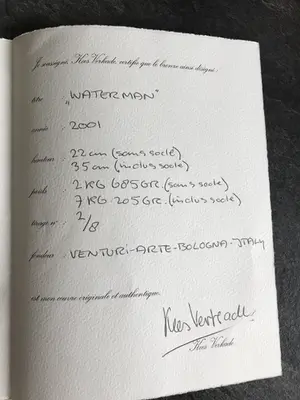 Je soussigné, Kees Verkade, certifie que le bronze ainsi désigné:
titre : „WATERMAN"
année : 2001
hauteur : 22 cm (sans socle)
35 cm (inclus socle)
poids : 2 KG 685 GR. (sans socle)
7 KG 205 GR. (inclus socle)
tirage n° : 2/8
fondeur : VENTURI-ARTE-BOLOGNA-ITALY
est mon œuvre originale et authentique.
Kees Verkade
Kees Verkade